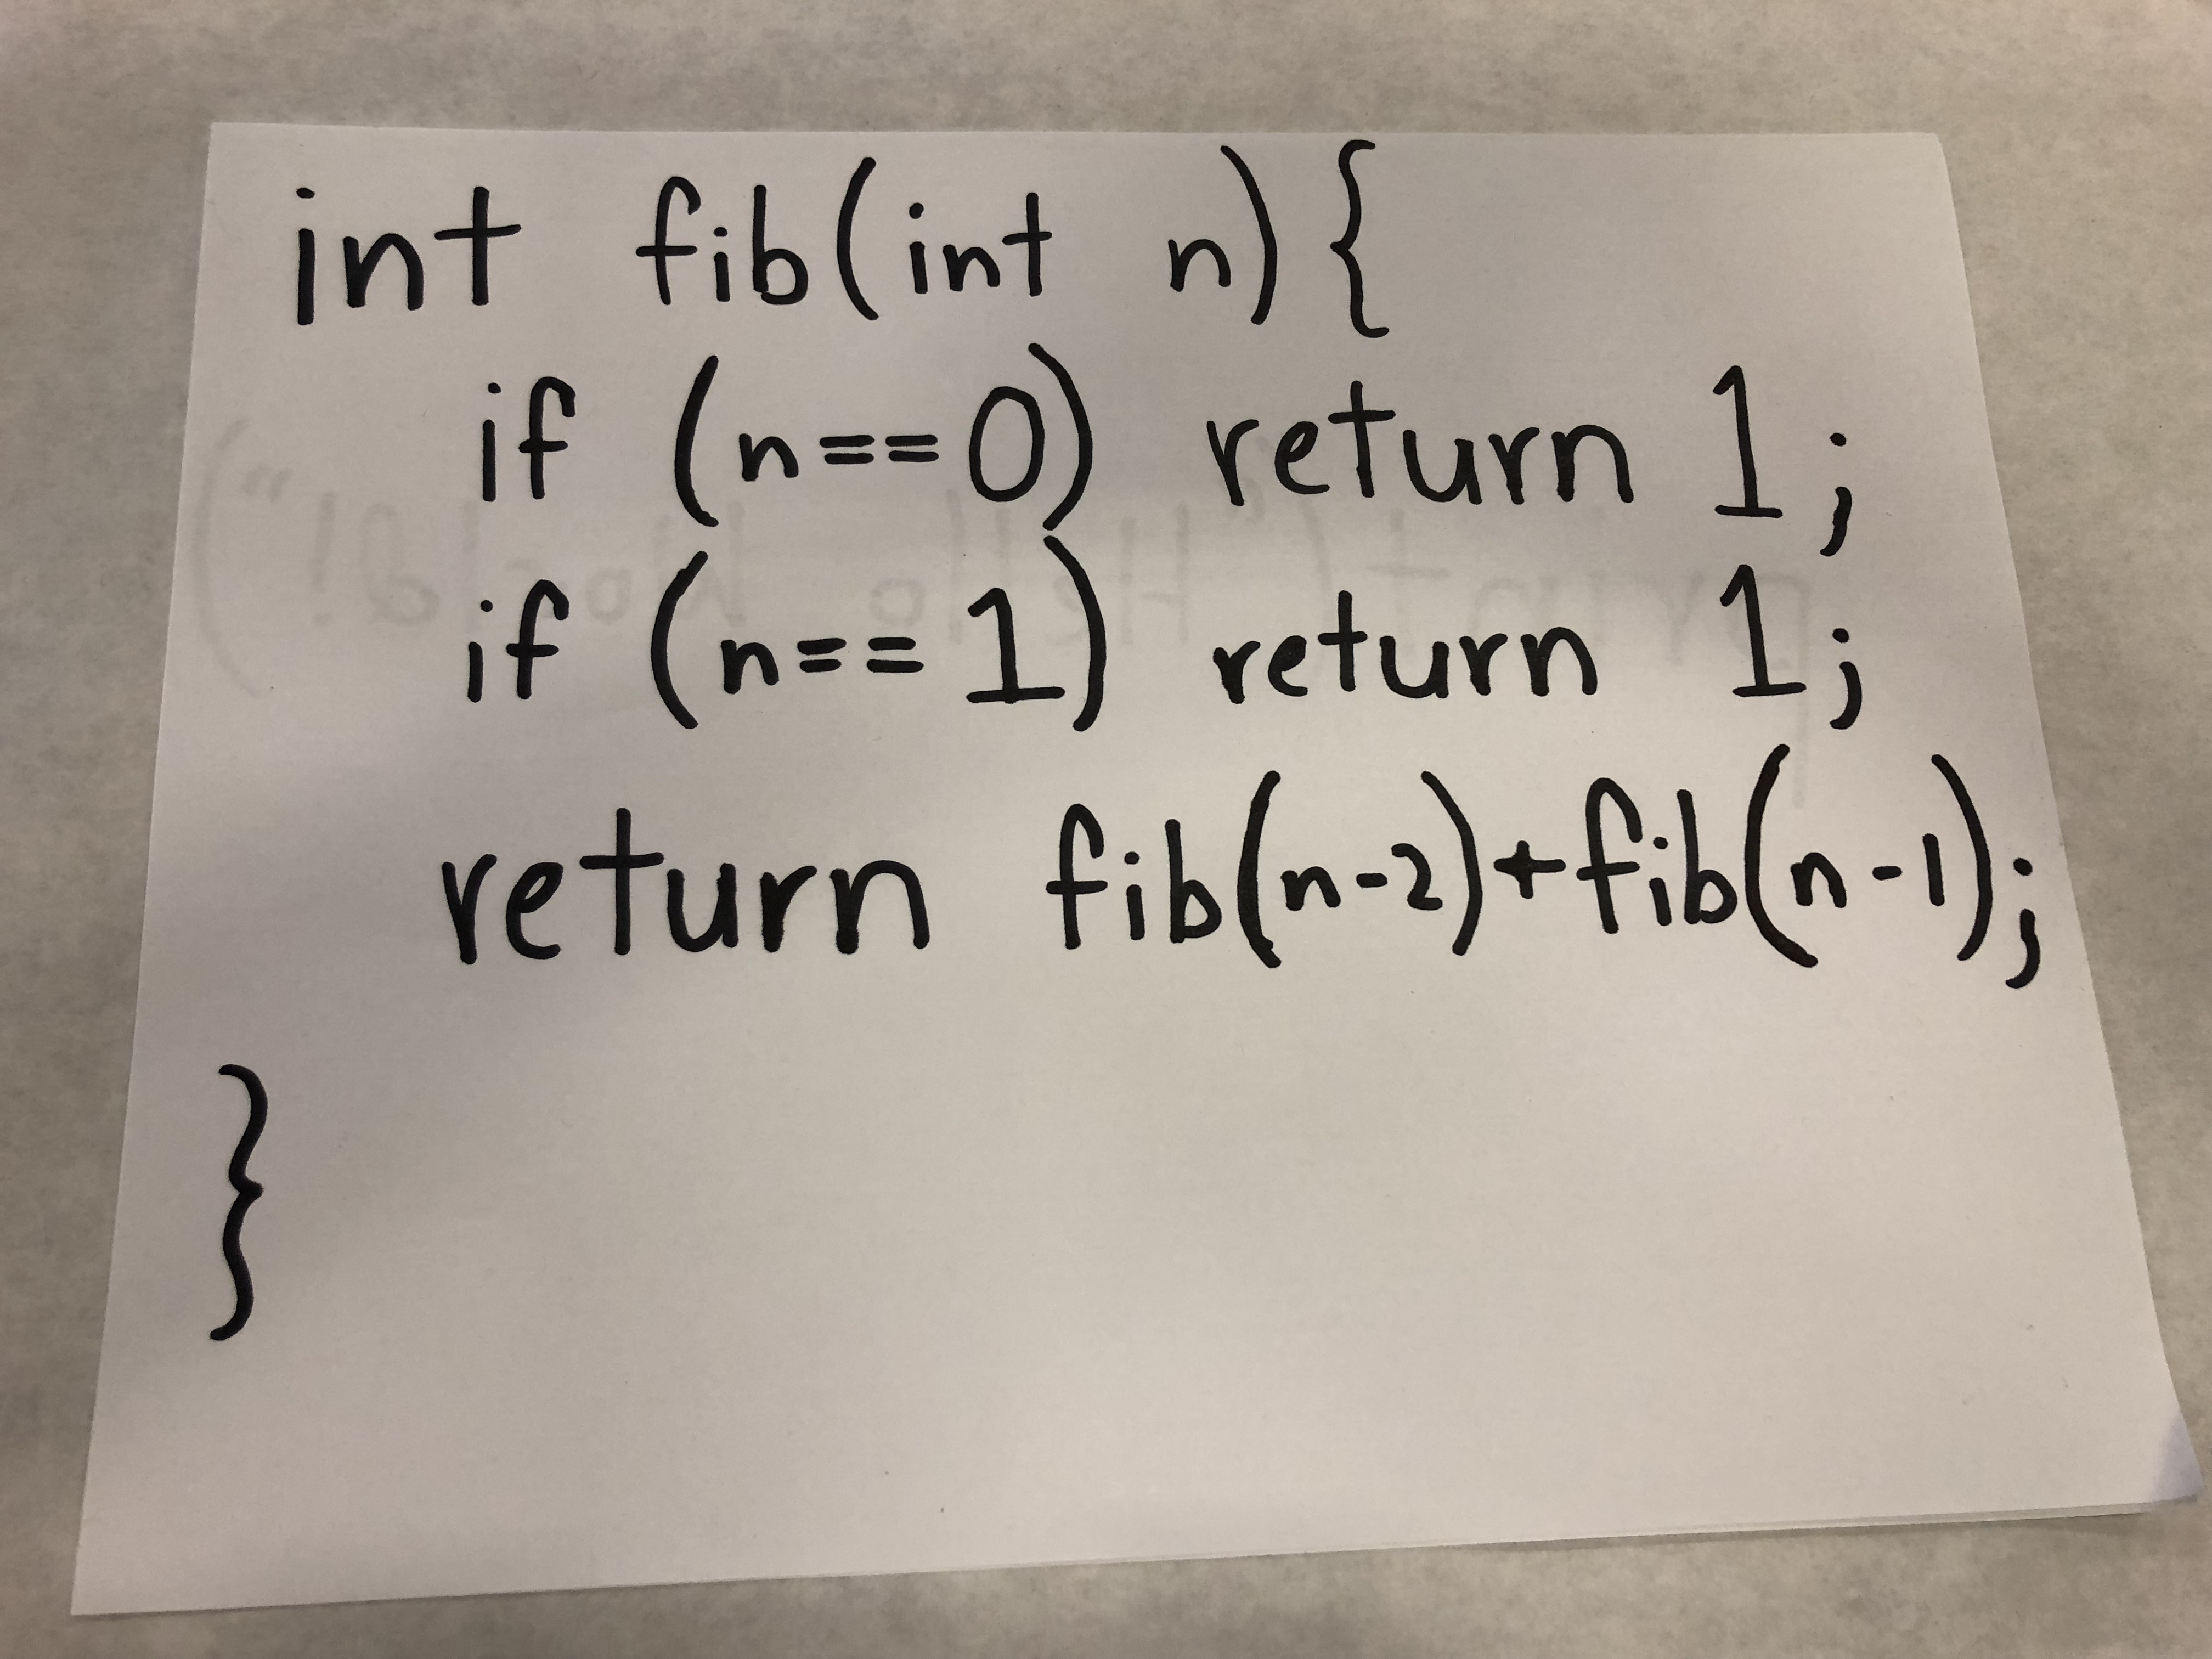 int fib(int n){
if (n==0) return 1;
if (n==1) return 1;
return fib(n-2)+fib(n-1);
}
print("Hello World!")